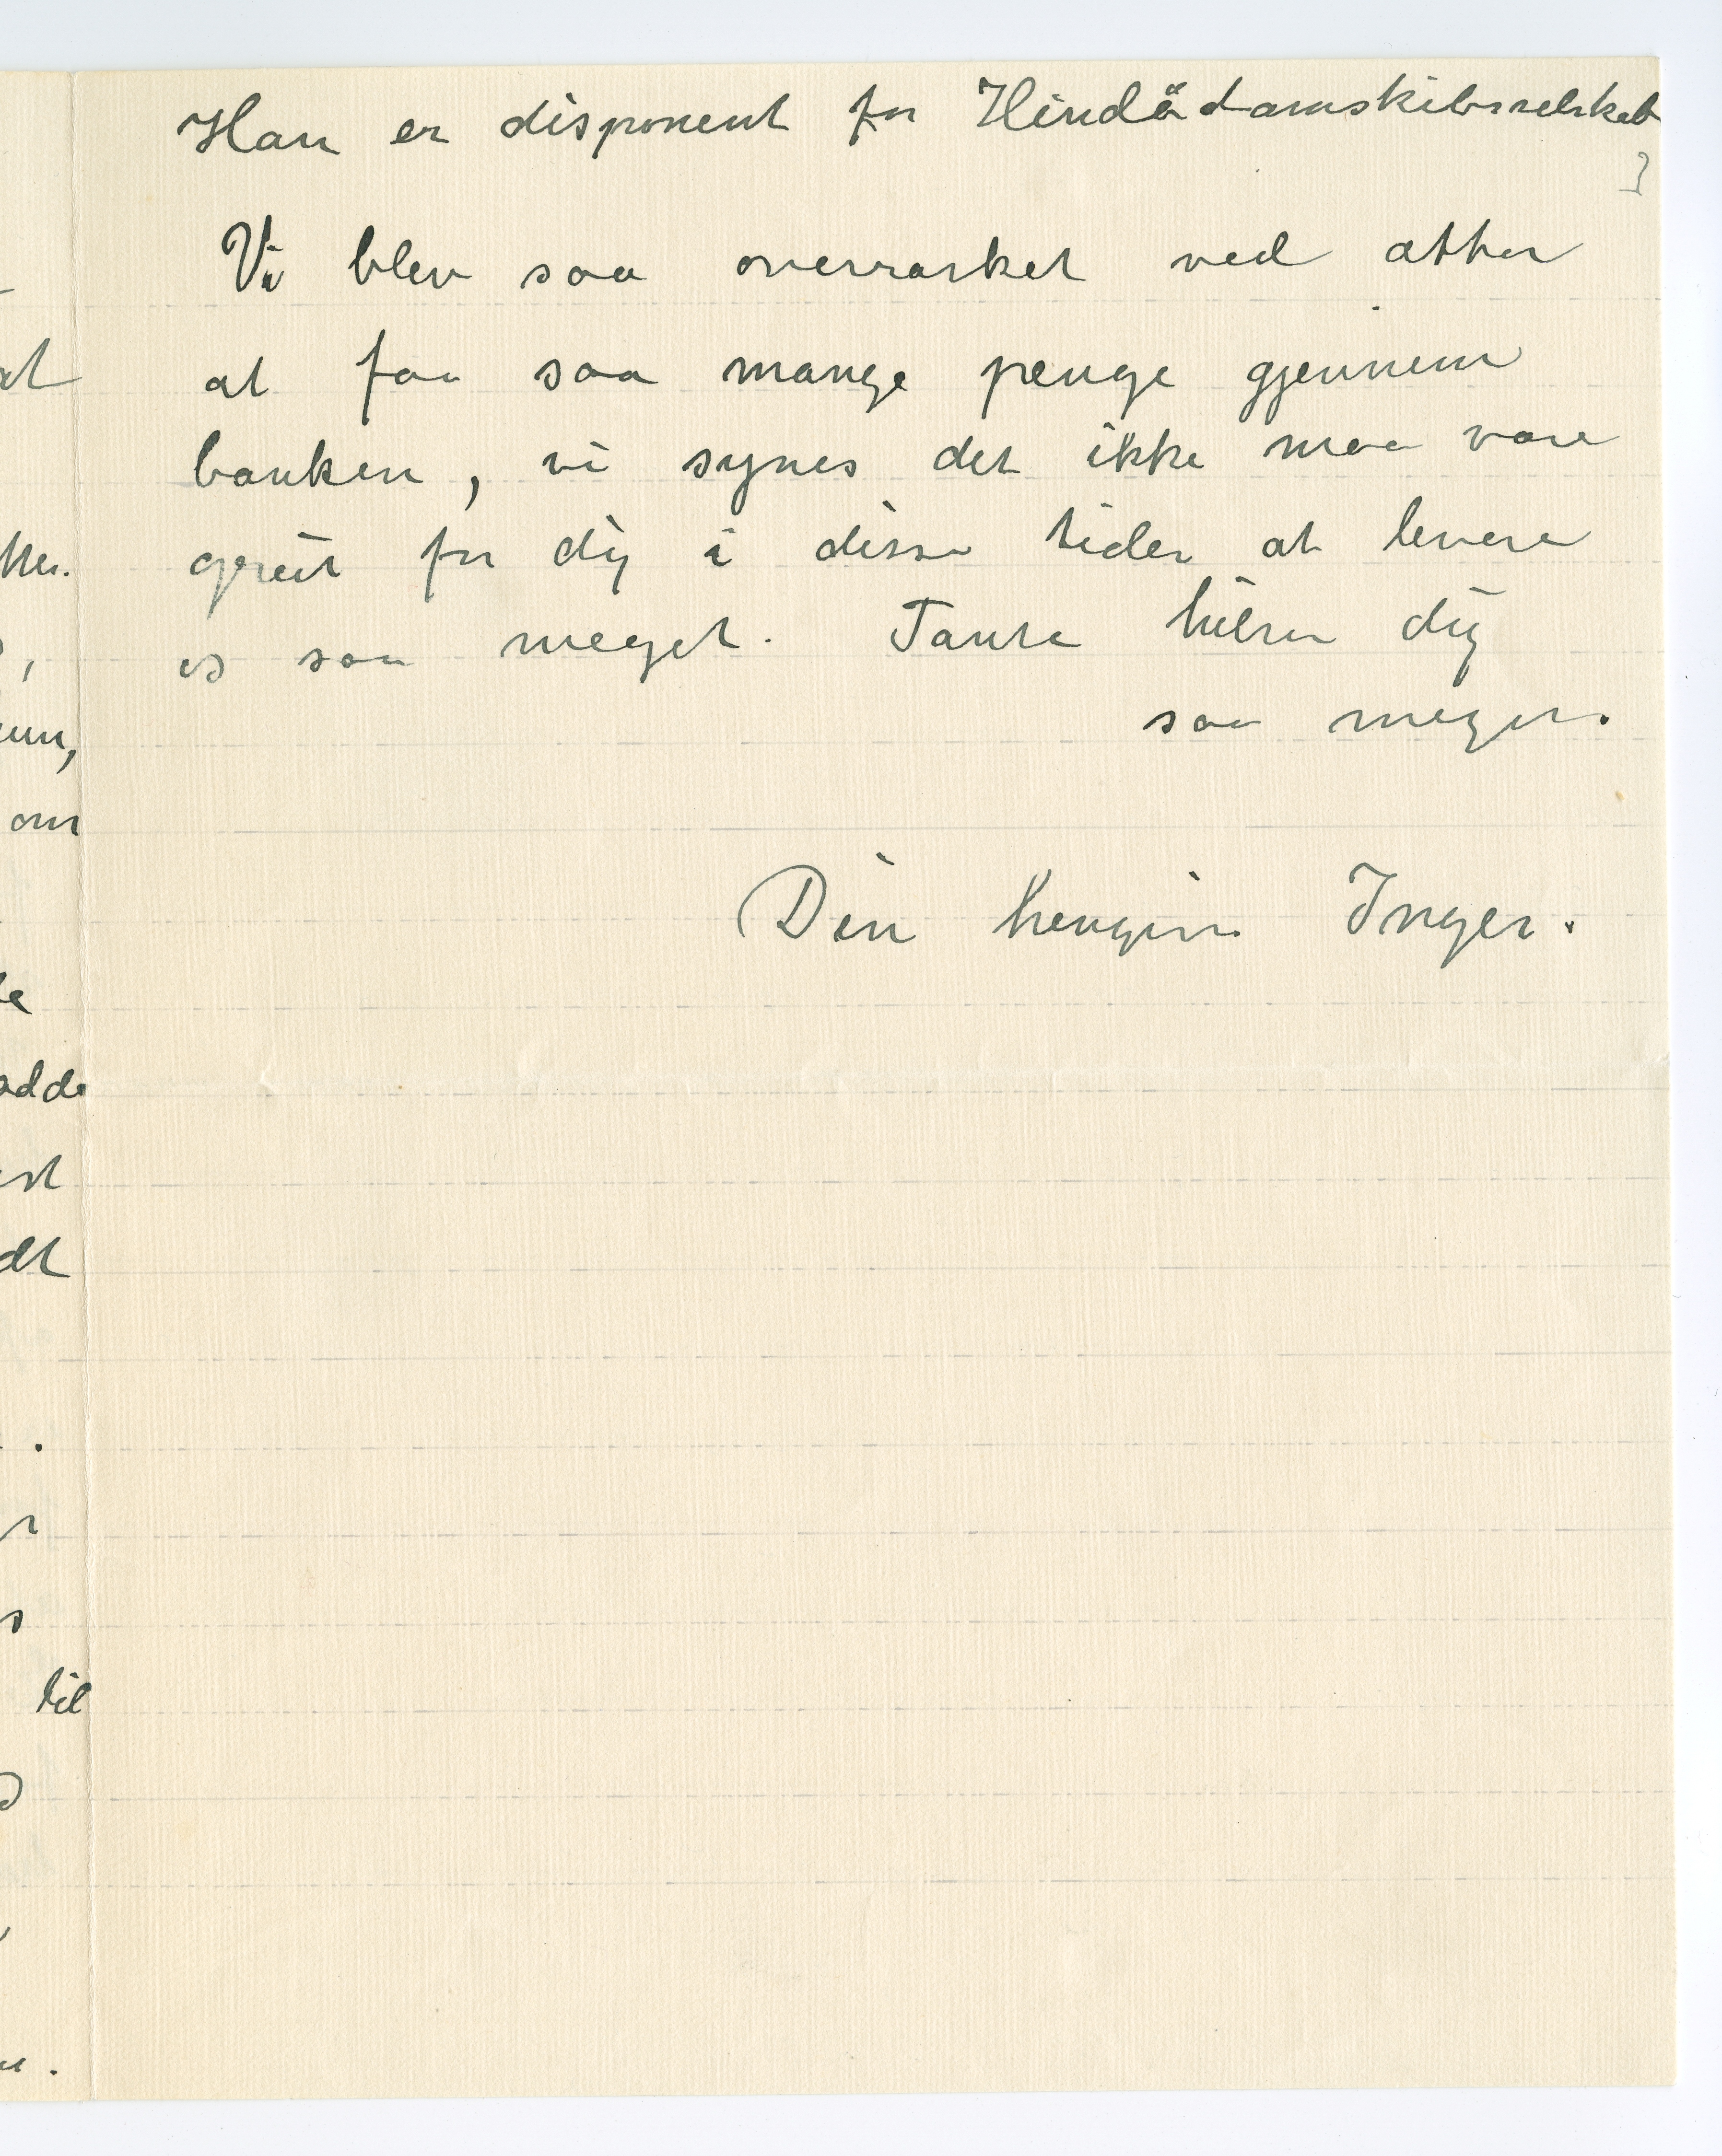 Han er disponent for Hindödamskibsselskab
Vi blev saa overrasket ved atter
at faa saa mange penge gjennem
banken, vi synes det ikke maa være
greit for dig i disse tider at levere
os saa meget. Tante hilser dig
saa meget.
Din hengivne Inger.
at
tter.
om
adde
dt
til